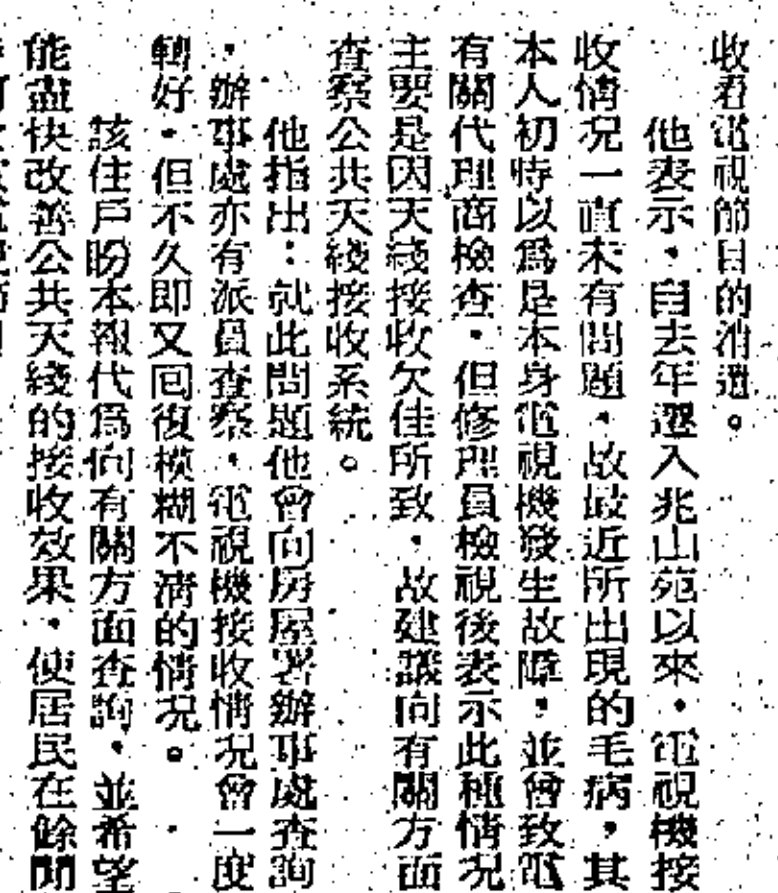 收看電視節目的消遣。
他表示，自去年遷入兆山苑以來，電視機接
收情况一直未有問題，故最近所出現的毛病，其
本人初時以爲是本身電視機發生故障，並曾致電
有關代理商檢查，但修理員檢視後表示此種情况
主要是因天綫接收欠佳所致，故建議向有關方面
查察公共天綫接收系統。
他指出：就此問題他曾向房屋署辦事處查詢
，辦事處亦有派員查察，電視機接收情况曾一度
轉好，但不久即又回復模糊不清的情况。
該住戶盼本報代爲向有關方面查詢，並希望
能盡快改善公共天綫的接收效果，使居民在餘閒